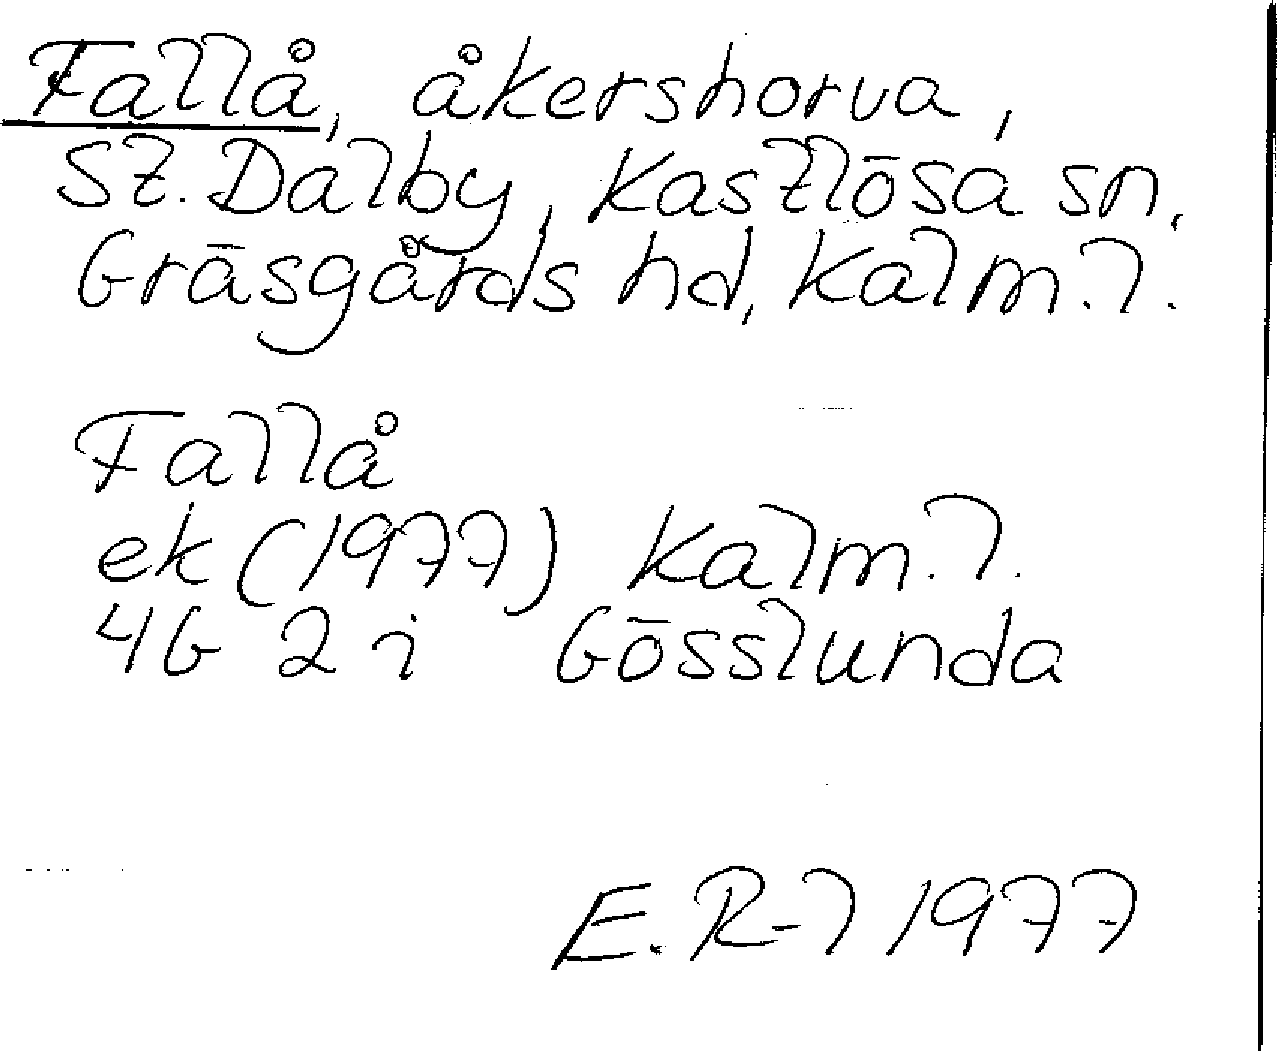 Fallå, åkershorva,
St. Dalby, Kastlösa sn,
Gräsgårds hd, Kalm. l.
Fallå
ek (1977) Kalm. l.
4G 2i Gösslunda
E. R-l 1977